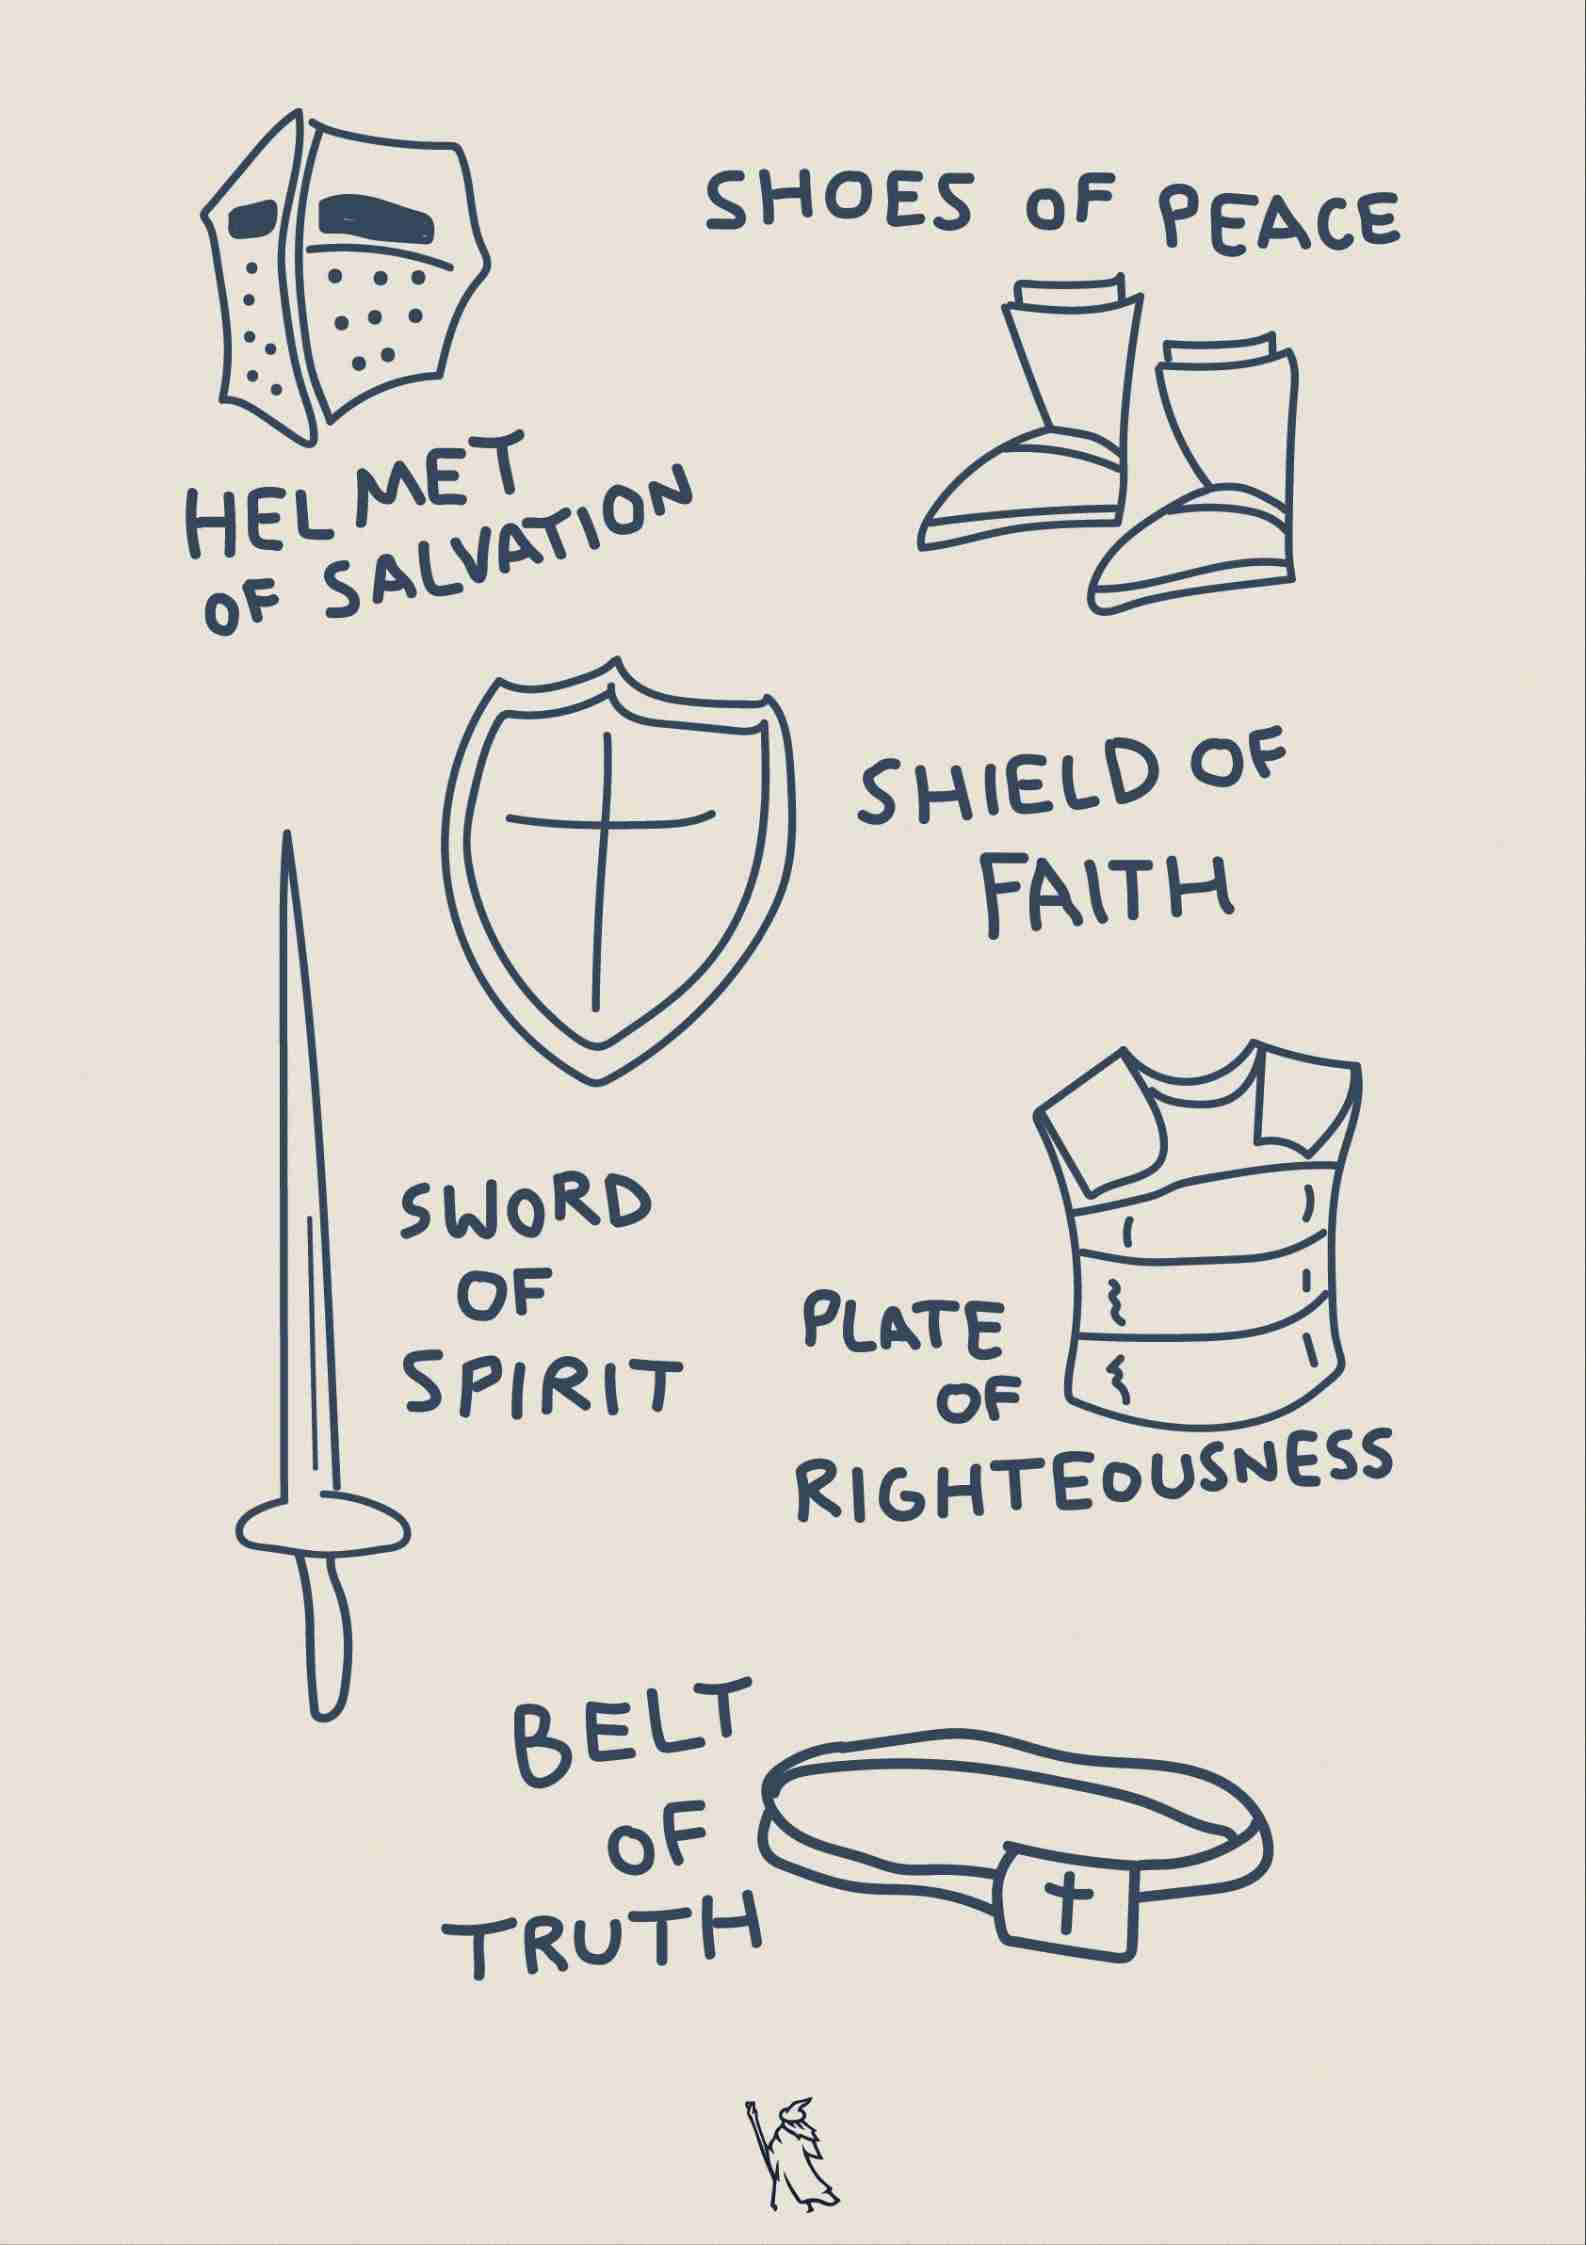 SHOES OF PEACE
HELMET
OF SALVATION
SHIELD OF
FAITH
SWORD
OF
SPIRIT
PLATE
OF
RIGHTEOUSNESS
BELT
OF
TRUTH